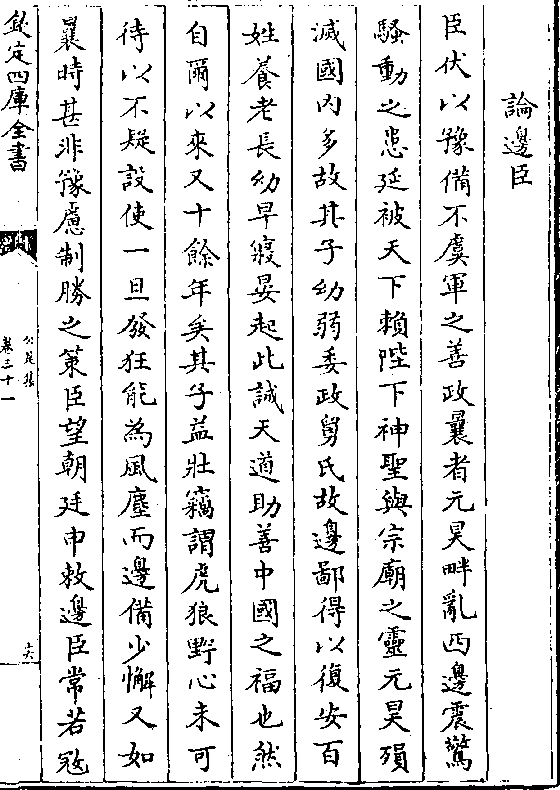 論邊臣
臣伏以豫備不虞軍之善政曩者元昊畔亂西邊震驚
騷動之患延被天下賴陛下神聖與宗廟之靈元昊殞
滅國内多故其子幼弱委政舅氏故邊鄙得以復安百
姓養老長幼早寢晏起此誠天道助善中國之福也然
自爾以來又十餘年矣其子益壯竊謂虎狼野心未可
待以不疑設使一旦發狂能為風塵而邊備少懈又如
曩時甚非豫慮制勝之策臣望朝廷申敕邊臣常若寇
欽定四庫全書
公是集
卷三十一